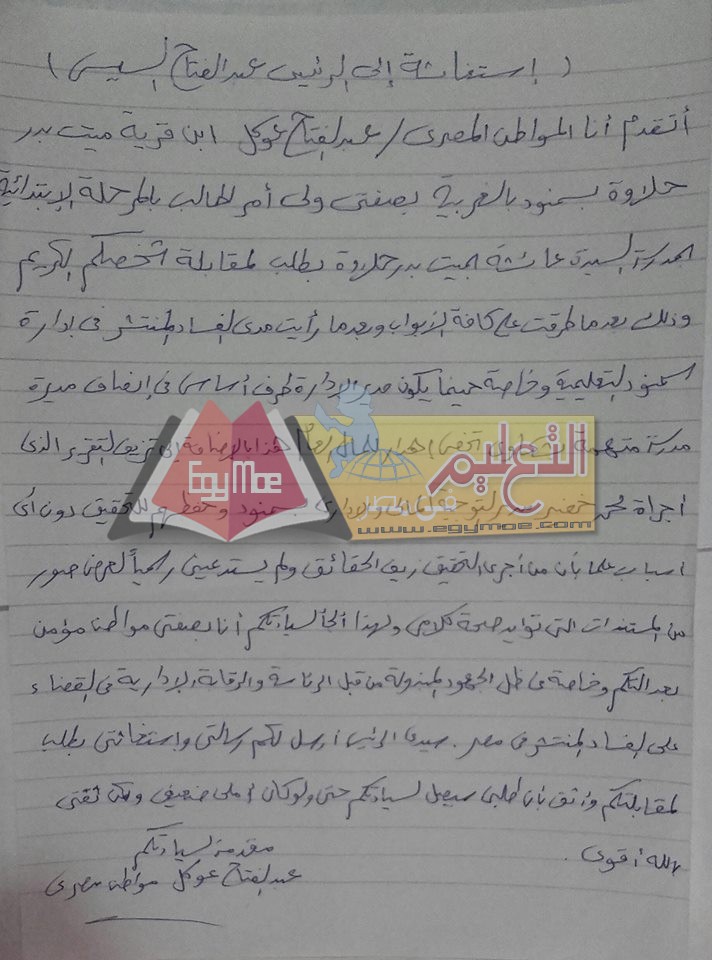 ( إستغاثة إلى الرئيس عبد الفتاح السيسى )
أتقدم أنا المواطن المصرى / عبد الفتاح عوكل ابن قرية ميت بدر
حلاوة بسمنود بالغربية بصفتى ولى أمر لطالب بالمرحلة الإبتدائية
بمدرسة السيدة عائشة بميت بدر حلاوة بطلب لمقابلة شخصكم الكريم
وذلك بعد ما طرقت على كافة الأبواب وبعد ما رأيت مدى الفساد المنتشر فى إدارة
سمنود التعليمية وخاصة حينما يكون مدير الإدارة طرف أساسى فى إنصاف مديرة
مدرسة متهمة إهدار المال العام هذا بالإضافة إلى تزيف التقرير الذى
أجراة خضير مدير التوجية المالى والإدارى بسمنود وحفظهم للتحقيق دون أى
اسباب علما بأن من أجرى التحقيق زيف الحقائق ولم يستدعينى رسمياً لعرض صور
من المستندات التى تؤيد صحة كلامى ولهذا ألجأ لسيادتكم أنا بصفتى مواطنا مؤمن
بعدالتكم وخاصة فى ظل الجهود المبذولة من قبل الرئاسة والرقابة الإدارية فى القضاء
على الفساد المنتشر فى مصر . سيدى الرئيس أرسل لكم رسالتى وإستغاثتى بطلب
لمقابلتكم وأثق بأن طلبى سيصل لسيادتكم حتى ولو كان أملى ضعيف ولكن ثقتى
بالله أقوى .
مقدمة لسيادتكم
عبد الفتاح عوكل مواطن مصرى
EgyMoe
التعليم
فى مصر
www.egymoe.com